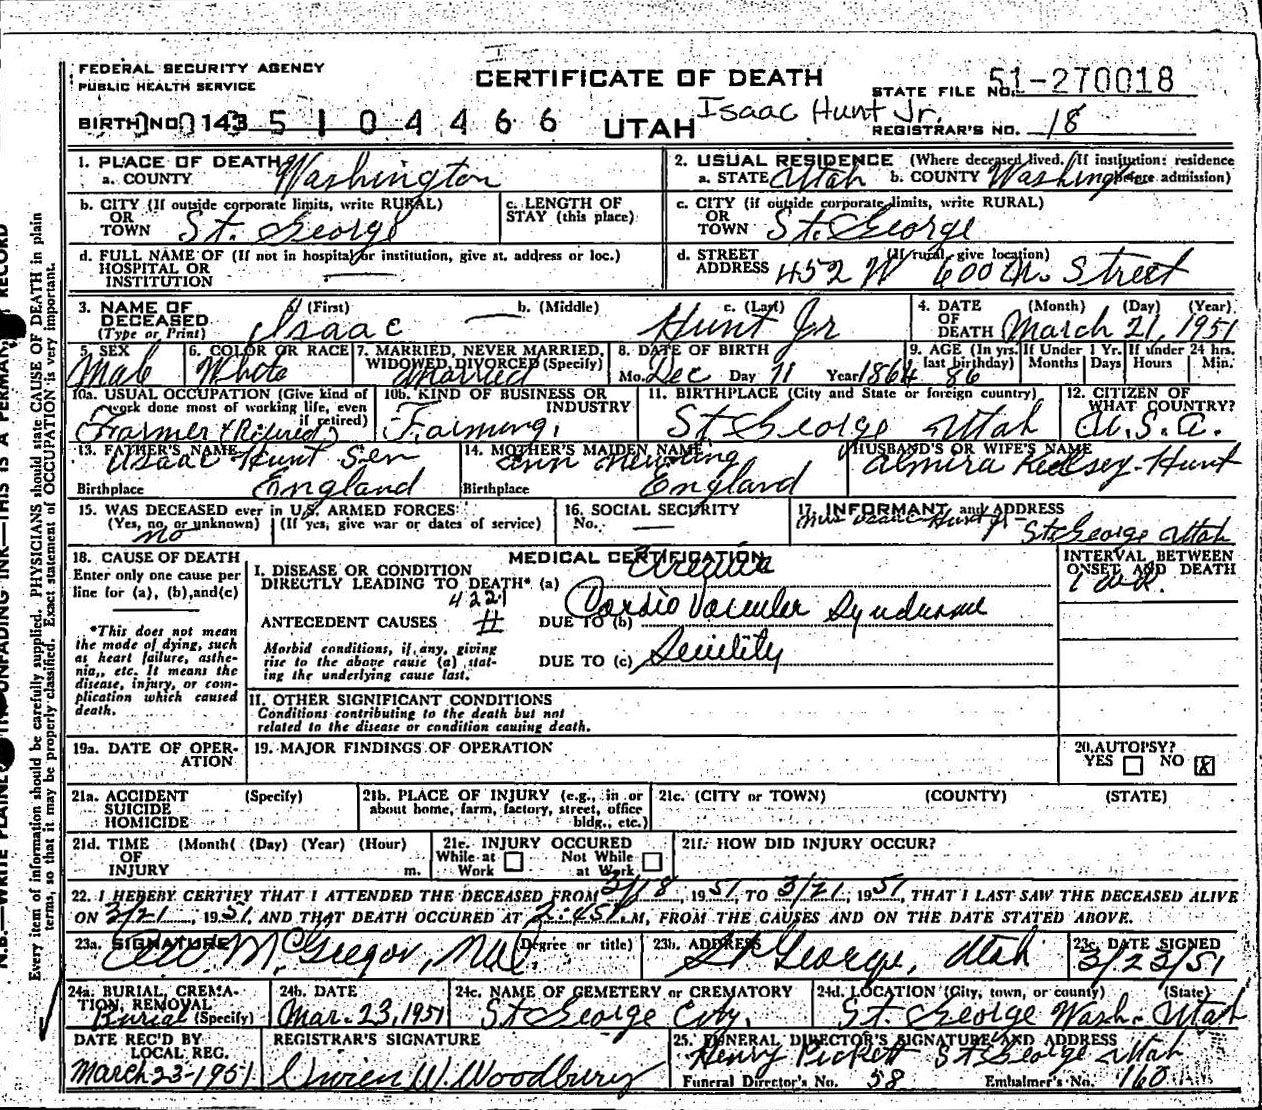 FEDERAL SECURITY AGENCY
PUBLIC HEALTH SERVICE
CERTIFICATE OF DEATH
STATE FILE NO. 51-270018
BIRTH NO. 0143 5104466
UTAH
Isaac Hunt Jr.
REGISTRAR'S NO. 18
N.B.—WRITE PLAINLY IN UNFADING INK—THIS IS A PERMANENT RECORD
Every item of information should be carefully supplied. PHYSICIANS should state CAUSE OF DEATH in plain
terms, so that it may be properly classified. Exact statement of OCCUPATION is very important.
1. PLACE OF DEATH
a. COUNTY Washington
2. USUAL RESIDENCE (Where deceased lived. If institution: residence
a. STATE Utah b. COUNTY Washington before admission)
b. CITY (If outside corporate limits, write RURAL)
OR
TOWN St. George
c. LENGTH OF
STAY (this place)
c. CITY (if outside corporate limits, write RURAL)
OR
TOWN St. George
d. FULL NAME OF (If not in hospital or institution, give st. address or loc.)
HOSPITAL OR
INSTITUTION
d. STREET (If rural, give location)
ADDRESS 452 W 600 No. Street
3. NAME OF
DECEASED
(Type or Print)
a (First)
Isaac
b. (Middle)
—
c. (Last)
Hunt Jr
4. DATE (Month) (Day) (Year)
OF
DEATH March 21, 1951
5. SEX
Male
6. COLOR OR RACE
White
7. MARRIED, NEVER MARRIED,
WIDOWED, DIVORCED (Specify)
Married
8. DATE OF BIRTH
Mo. Dec Day 11 Year 1864
9. AGE (In yrs.
last birthday)
86
If Under 1 Yr.
Months Days
If under 24 hrs.
Hours Min.
10a. USUAL OCCUPATION (Give kind of
work done most of working life, even
if retired)
Farmer (Retired)
10b. KIND OF BUSINESS OR
INDUSTRY
Farming.
11. BIRTHPLACE (City and State or foreign country)
St George Utah
12. CITIZEN OF
WHAT COUNTRY?
U.S.A.
13. FATHER'S NAME
Isaac Hunt Sen
Birthplace England
14. MOTHER'S MAIDEN NAME
Ann
Birthplace England
HUSBAND'S OR WIFE'S NAME
Almira Kelsey Hunt
15. WAS DECEASED ever in U.S. ARMED FORCES:
(Yes, no, or unknown) (If yes, give war or dates of service)
no
16. SOCIAL SECURITY
No. —
17. INFORMANT and ADDRESS
Mrs Isaac Hunt Jr - St George Utah
18. CAUSE OF DEATH
Enter only one cause per
line for (a), (b), and (c)
*This does not mean
the mode of dying, such
as heart failure, asthe-
nia,, etc. It means the
disease, injury, or com-
plication which caused
death.
MEDICAL CERTIFICATION
I. DISEASE OR CONDITION
DIRECTLY LEADING TO DEATH* (a) Uremia
4221
ANTECEDENT CAUSES
DUE TO (b) Cardio Vascular Syndrome
Morbid conditions, if any, giving
rise to the above cause (a) stat-
ing the underlying cause last.
DUE TO (c) Senility
INTERVAL BETWEEN
ONSET AND DEATH
1 wk.
II. OTHER SIGNIFICANT CONDITIONS
Conditions contributing to the death but not
related to the disease or condition causing death.
19a. DATE OF OPER-
ATION
19. MAJOR FINDINGS OF OPERATION
20. AUTOPSY?
YES NO X
21a. ACCIDENT (Specify)
SUICIDE
HOMICIDE
21b. PLACE OF INJURY (e.g., in or
about home, farm, factory, street, office
bldg., etc.)
21c. (CITY or TOWN) (COUNTY) (STATE)
21d. TIME (Month( (Day) (Year) (Hour)
OF
INJURY m.
21e. INJURY OCCURED
While at Not While
Work at Work
21f. HOW DID INJURY OCCUR?
22. I HEREBY CERTIFY THAT I ATTENDED THE DECEASED FROM 3/18, 1951, TO 3/21, 1951, THAT I LAST SAW THE DECEASED ALIVE
ON 3/21, 1951, AND THAT DEATH OCCURED AT 2:45 M, FROM THE CAUSES AND ON THE DATE STATED ABOVE.
23a. SIGNATURE (Degree or title)
McGregor, M.D.
23b. ADDRESS
St George, Utah
23c. DATE SIGNED
3/23/51
24a. BURIAL, CREMA-
TION, REMOVAL
Burial (Specify)
24b. DATE
Mar. 23, 1951
24c. NAME OF CEMETERY or CREMATORY
St George City.
24d. LOCATION (City, town, or county) (State)
St. George Wash. Utah
DATE REC'D BY
LOCAL REG.
March 23-1951
REGISTRAR'S SIGNATURE
W. Woodbury
25. FUNERAL DIRECTOR'S SIGNATURE AND ADDRESS
Henry Pickett St George Utah
Funeral Director's No. 58 Embalmer's No. 160